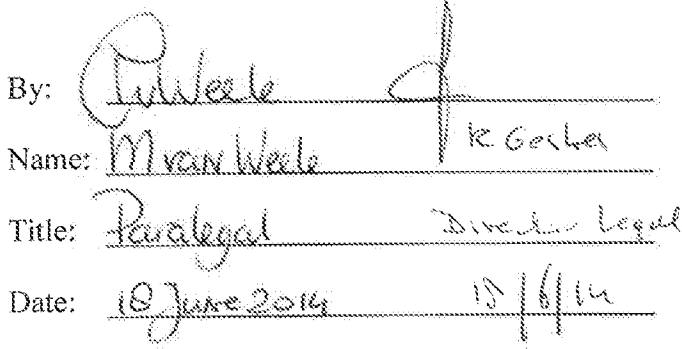 By: MvWeele
Name: M van Weele K Gerber
Title: Paralegal Director Legal
Date: 18 June 2014 18/6/14